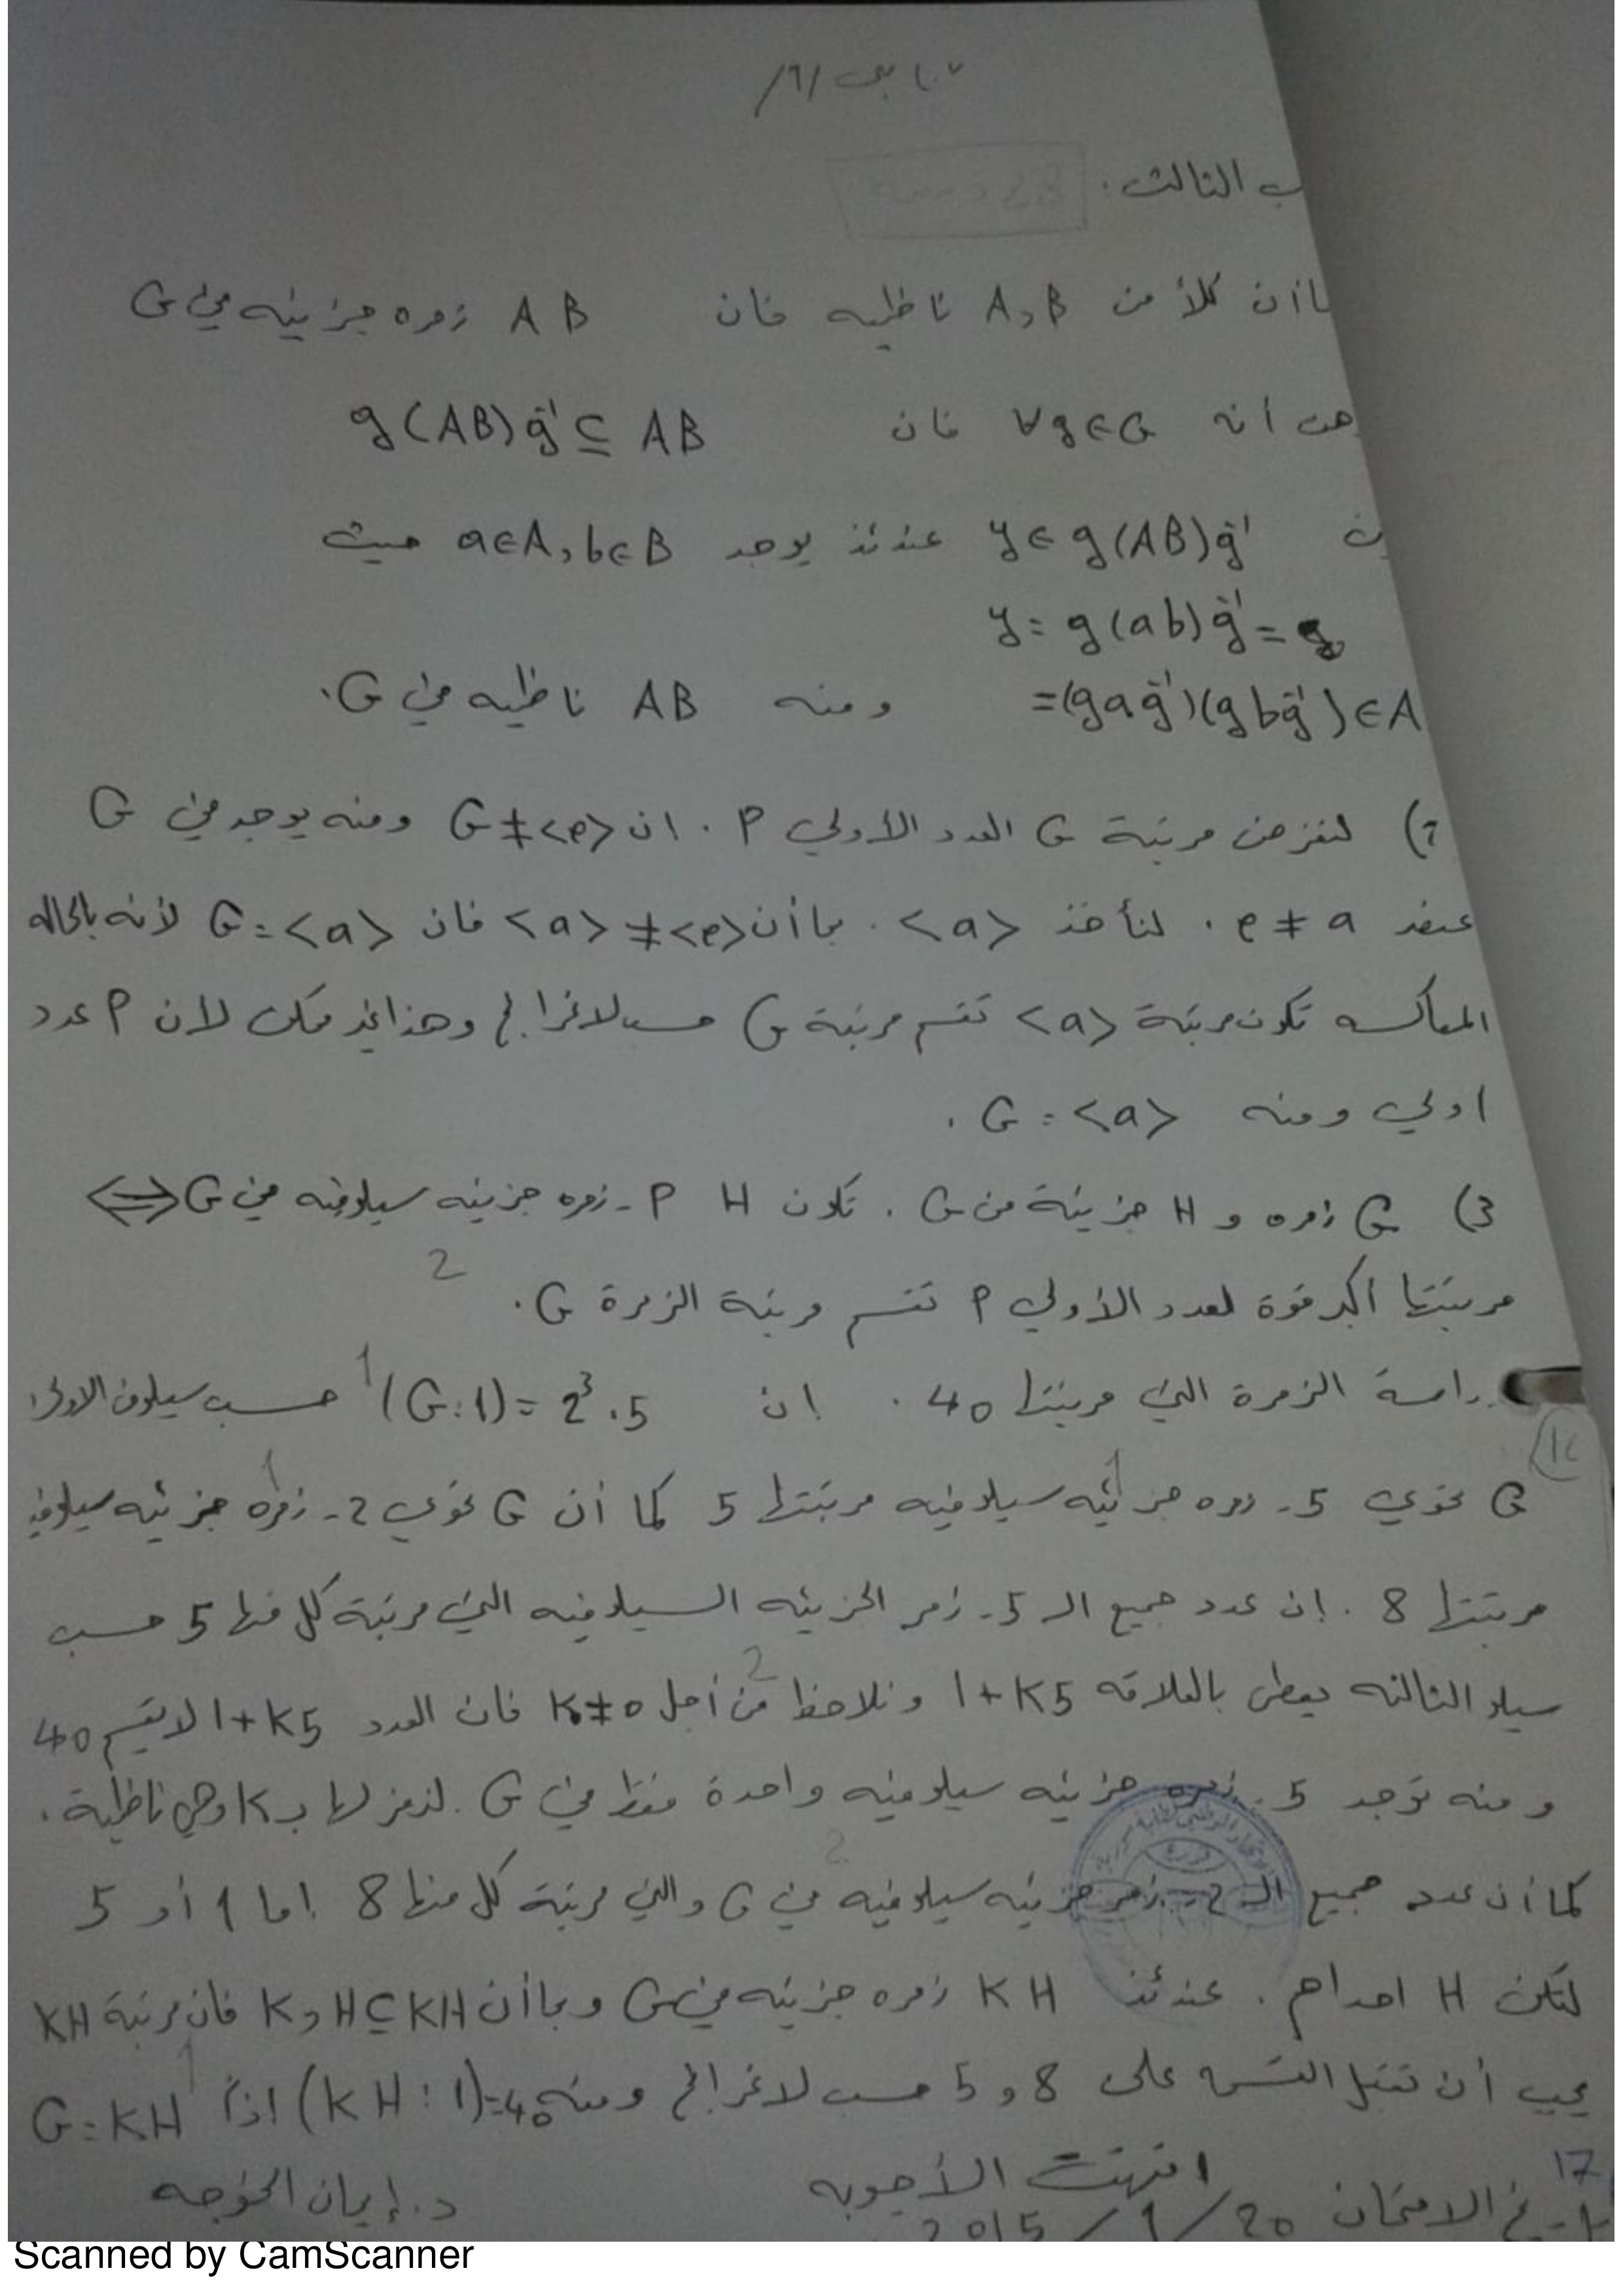 /٦/
ب الثالث .
ما أن كلاً من A و B ناظميه فان AB زمره جزئيه في G
هن أنه ∀g∈G فان g(AB)g⁻¹ ⊆ AB
y∈g(AB)g⁻¹ عندئذ يوجد a∈A, b∈B حيث
y = g(ab)g⁻¹ =
=(gag⁻¹)(gbg⁻¹)∈A ومنه AB ناظميه في G.
2) لنفرض مرتبة G العدد الأولي P . ان G≠<e> ومنه يوجد في G
عنصر e≠a . لنأخذ <a> . بما أن <a>≠<e> فان G=<a> لأنه بالحاله
المعاكسه تكون مرتبة <a> تقسم مرتبة G حسب لاغرانج وهذا غير ممكن لان P عدد
اولي ومنه G=<a> .
3) G زمره و H جزئية من G . تكون H P-زمره جزئيه سيلوفيه في G ⟺
2
مرتبتها أكبر قوة لعدد الأولي P تقسم مرتبة الزمرة G .
دراسة الزمرة التي مرتبتها 40 . ان (G:1)=2³.5 1 حسب سيلوف الاولى
G تحوي 5- زمره جزئيه سيلوفيه مرتبتها 5 كما أن G تحوي 2- زمره جزئيه سيلوفيه
مرتبتها 8 . إن عدد جميع الـ 5- زمر الجزئيه السيلوفيه التي مرتبة كل منها 5 حسب
سيلو الثالثه يعطى بالعلاقه 1+K5 ونلاحظ من أجل K≠0 فان العدد 1+K5 لا يقسم 40
ومنه توجد 5- زمره جزئيه سيلوفيه واحدة فقط في G . لنرمز لها بـ K وهي ناظمية .
2
كما أن عدد جميع الـ 2- زمر جزئيه سيلوفيه في G والتي مرتبة كل منها 8 اما 1 أو 5
لتكن H احداهم . عندئذ KH زمره جزئيه في G وبما أن K و H⊆KH فان مرتبة KH
يجب أن تقبل القسمه على 8 و 5 حسب لاغرانج ومنه (KH:1)=40 اذاً G=KH
انتهت الأجوبه
17
تاريخ الامتحان 20/1/2015
د. إيمان الخوجه
Scanned by CamScanner